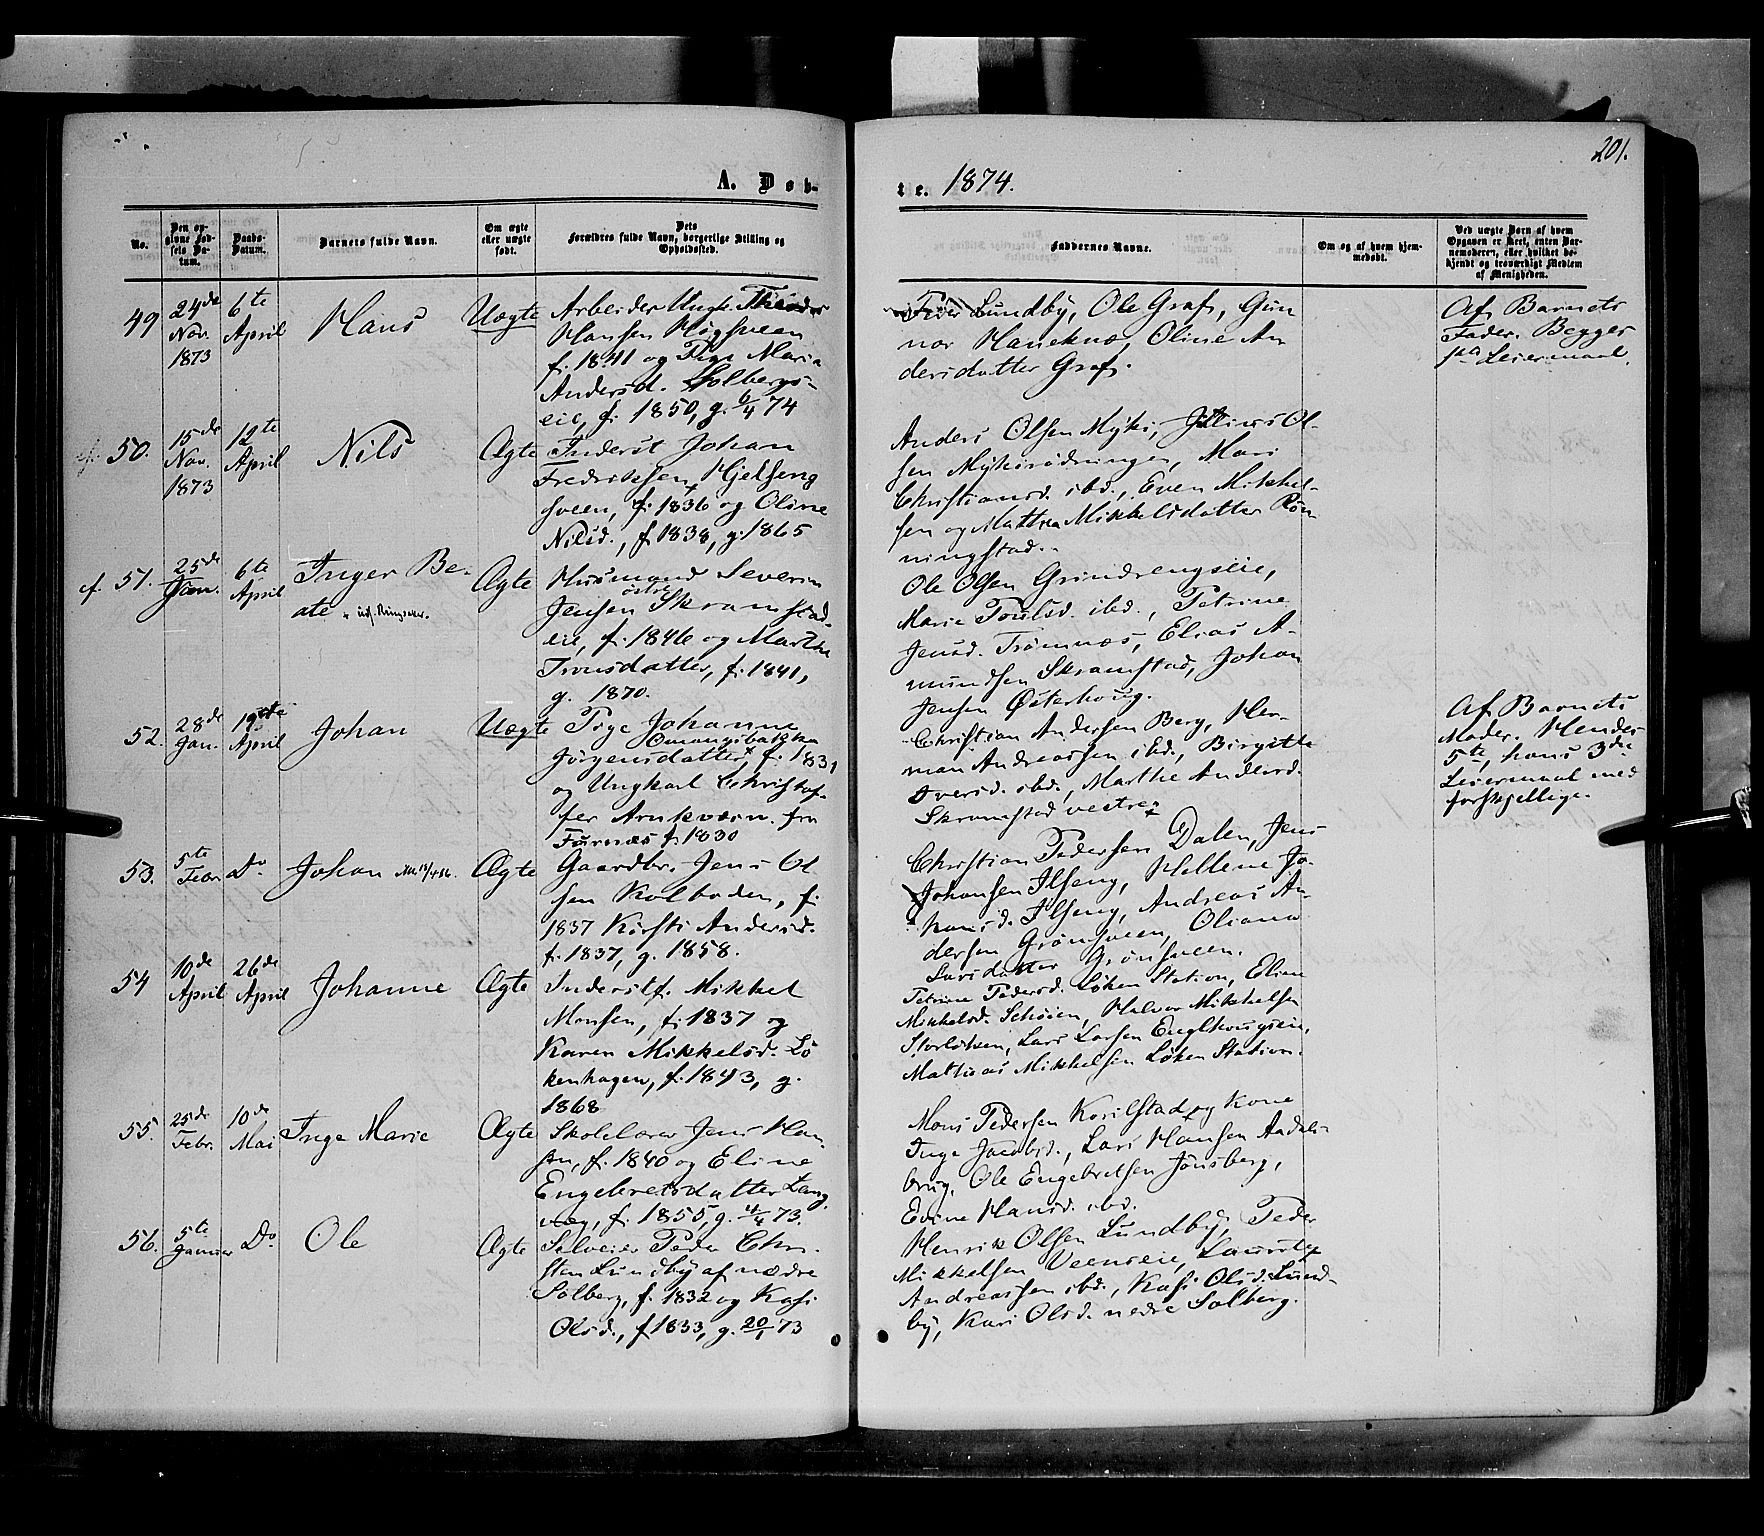 201.
A. Døb-
te. 1874.
No.
Den op-
givne Fød-
sels Da-
tum.
Daabs-
Datum.
Barnets fulde Navn.
Om ægte
eller uægte
født.
Dets
Forældres fulde Navn, borgerlige Stilling og
Opholdssted.
Faddernes Navne.
Om og af hvem hjem-
medøbt.
Ved uægte Børn af hvem
Opgaven er skeet, enten Bar-
nemoderen, eller hvilket be-
kjendt og troværdigt Medlem
af Menigheden.
49
24de
Nov.
1873
6te
April
Hans
Uægte
Arbeider Ungk. Theodor
Hansen Høgsveen
f. 1841 og Pige Maria
Andersd. Solbergs-
eie, f. 1850, g. 6/4 74
Peder Lundby, Ole Graf, Gun
nor Haneknæ, Oline An
dersdatter Graf.
Af Barnets
Fader. Begges
1ste Leiermaal.
50.
15de
Nov.
1873
12te
April
Nils
Ægte
Inderst Johan
Fredriksen Hjelseng
sveen, f. 1836 og Oline
Nilsd., f 1838, g. 1865
Anders Olsen Myhr, Julius Ol-
sen Myhrsødningen, Mari
Christiansd. ibd., Even Mikkel-
sen og Mathea Mikkelsdatter Røn
ningstad.
cf. 51.
25de
Jan.
6te
April
Inger Be-
ate " udf. Ringsaker.
Ægte
Husmand Severin
Jensen østre Skramstad-
eie, f. 1846 og Marthe
Tronsdatter, f. 1841,
g. 1870.
Ole Olsen Grindrengseie,
Marie Poulsd. ibd., Petrine
Jensd. Trømnæs, Elias A-
mundsen Skramstad, Johan
Jensen Østerhoug.
52.
28de
Jan.
19de
April
Johan
Uægte
Pige Johanne
Omangsbakke
Jørgensdatter, f. 1831
og Ungkarl Christof-
fer Arnkværn fra
Furnæs f. 1830
Christian Andersen Berg, Her-
man Andreassen ibd., Birgitte
Iversd. ibd., Marthe Andersd.
Skramstad vestre
Af Barnets
Moder. Hendes
5te, hans 3die
Leiermaal med
forskjellige.
53.
5te
Febr
Do
Johan
Ægte
Gaardbr. Jens Ol
sen Kolboden, f.
1837 Kirsti Andersd.
f. 1837, g. 1858.
Christian Pedersen Dalen, Jens
Johansen Ilseng, Hellene Jo-
hansd. Ilseng, Andreas An-
dersen Grønsveen, Oliana
Larsdatter Grønsveen.
54
10de
April
26de
April
Johanne
Ægte
Inderst f. Mikkel
Monsen, f. 1837 og
Karen Mikkelsd. Lø
kenhagen, f. 1843, g.
1868
Petrine Pedersd. Løken Station, Eline
Mikkelsd. Schøien, Halvor Mikkelsen
Storløken, Lars Larsen Englhougseie,
Mathias Mikkelsen Løken Station.
55.
25de
Febr.
10de
Mai
Inga Marie
Ægte
Skolelærer Jens Han-
sen, f. 1840 og Eline
Engebretsdatter Lang
væg, f. 1855, g. 4/4 73.
Mons Pedersen Korilstad og Kone
Inge Jacobsd., Lars Hansen Aadals-
brug, Ole Engebretsen Jønsberg,
Evine Hansd. ibd.
56.
5te
Januar
Do
Ole
Ægte
Selveier Peder Chri-
sten Lundby af nedre
Solberg, f. 1832 og Kasi
Olsd., f 1833, g. 20/1 73
Henrik Olsen Lundby, Peder
Mikkelsen Veenseie, Lauritz
Andreassen ibd., Kasi Olsd. Lund-
by, Kari Olsd. nedre Solberg.